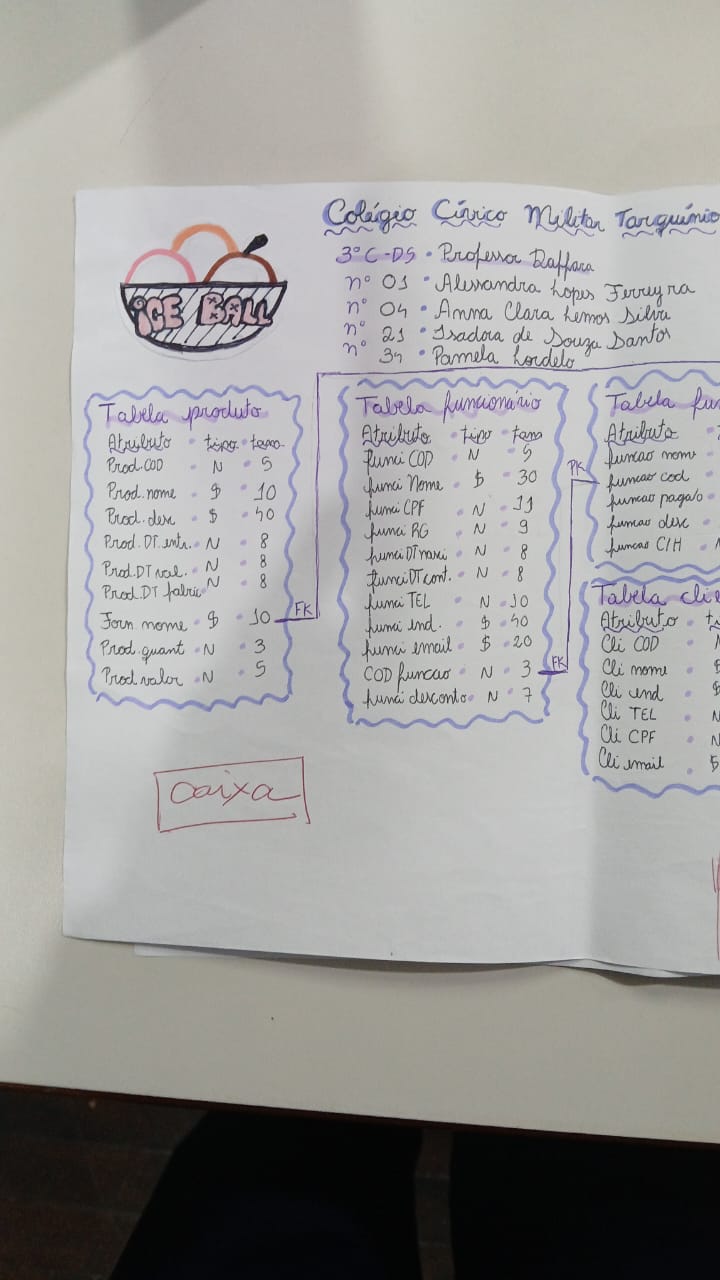 Colégio Cívico Militar Tarquínio
3º C-DS • Professor Raffara
nº 01 • Alessandra Lopes Ferreyra
nº 04 • Anna Clara Lemos Silva
nº 21 • Isadora de Souza Santos
nº 34 • Pamela Lordelo
ICE BALL
Tabela produto
Atributo • tipo • tamo
Prod.COD • N • 5
Prod.nome • $ • 10
Prod.desc • $ • 40
Prod.DT.entr. • N • 8
Prod.DT val. • N • 8
Prod.DT fabric • N • 8
Forn.nome • $ • 10 FK
Prod.quant • N • 3
Prod.valor • N • 5
Tabela funcionário
Atributo • tipo • tamo
funci COD • N • 5
funci Nome • $ • 30
funci CPF • N • 11
funci RG • N • 9
funci DT nasci • N • 8
funci DT cont. • N • 8
funci TEL • N • 10
funci end. • $ • 40
funci email • $ • 20
COD funcao • N • 3 FK
funci desconto • N • 7
Tabela fun
Atributo
funcao nome
PK funcao cod
funcao pagato
funcao desc
funcao C/H
Tabela clie
Atributo • t
Cli COD • N
Cli nome • $
Cli end • $
Cli TEL • N
Cli CPF • N
Cli email • $
caixa